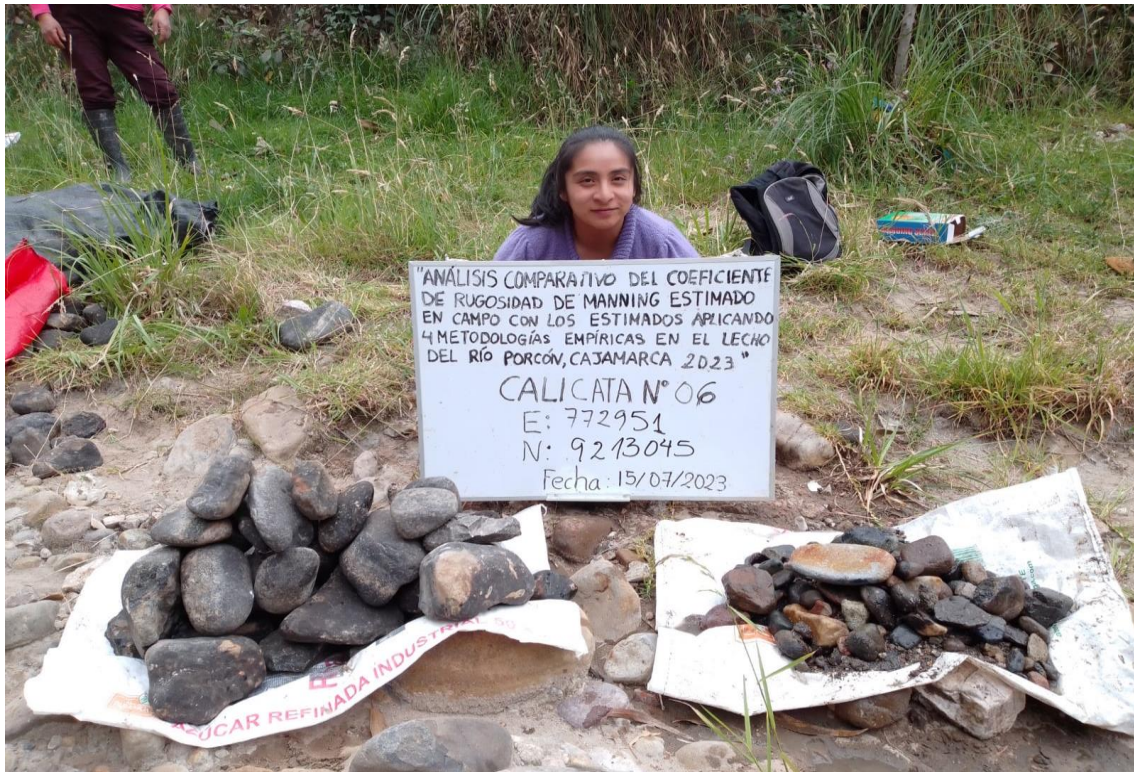 "ANÁLISIS COMPARATIVO DEL COEFICIENTE
DE RUGOSIDAD DE MANNING ESTIMADO
EN CAMPO CON LOS ESTIMADOS APLICANDO
4 METODOLOGÍAS EMPÍRICAS EN EL LECHO
DEL RÍO PORCÓN, CAJAMARCA 2023"
CALICATA N° 06
E: 772951
N: 9213045
Fecha: 15/07/2023
AZÚCAR REFINADA INDUSTRIAL 50